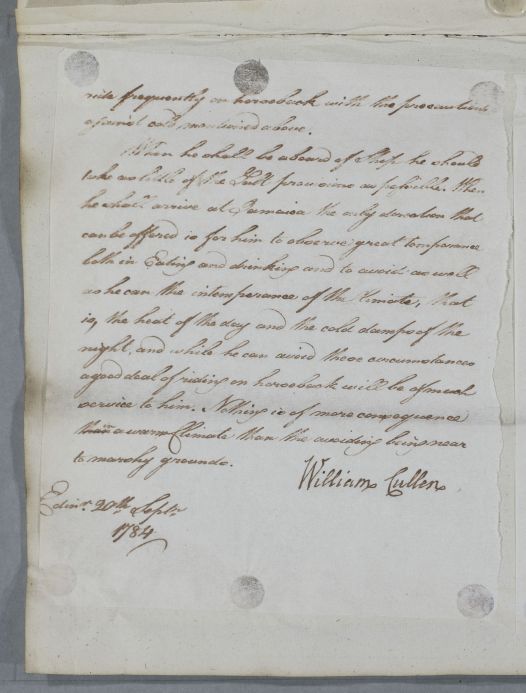 ride frequently on horseback with the precautions
against cold mentioned above.
When he shall be aboard of Ship he should
take as little of the Salt provisions as possible. When
he shall arrive at Jamaica the only direction that
can be offered is for him to observe great temperance
both in Eating and drinking and to avoid as well
as he can the intemperance of the Climate, that
is, the heat of the day and the cold damps of the
night, and while he can avoid these circumstances
a good deal of riding on horseback will be of much
service to him. Nothing is of more consequence
in a warm Climate than the avoiding being near
to marshy grounds.
William Cullen
Edinr. 20th Septr.
1784